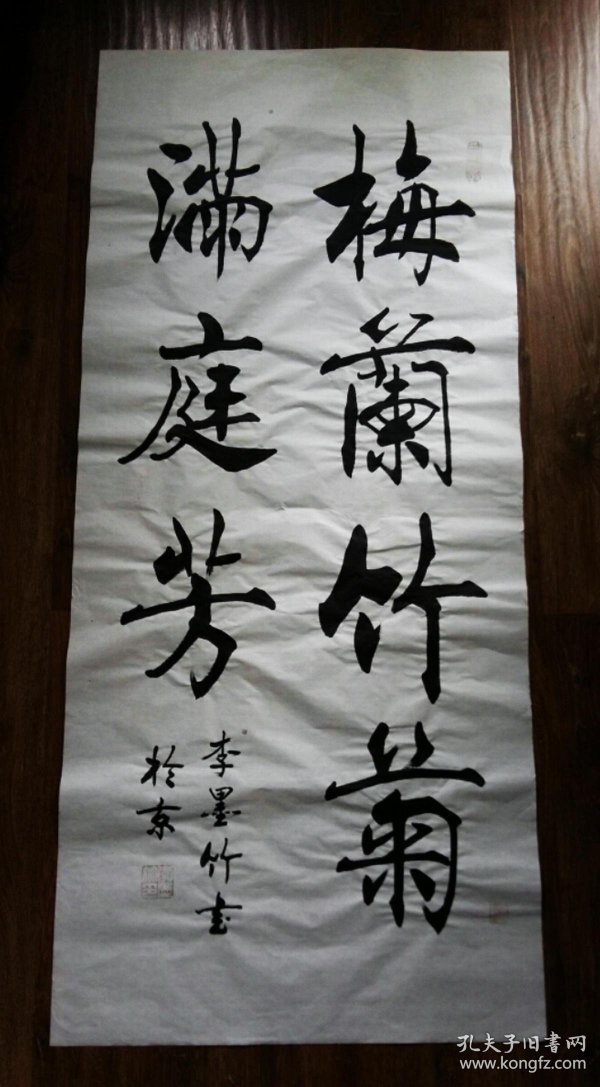 梅蘭竹菊
滿庭芳
李墨竹书
於京
孔夫子旧書网
www.kongfz.com